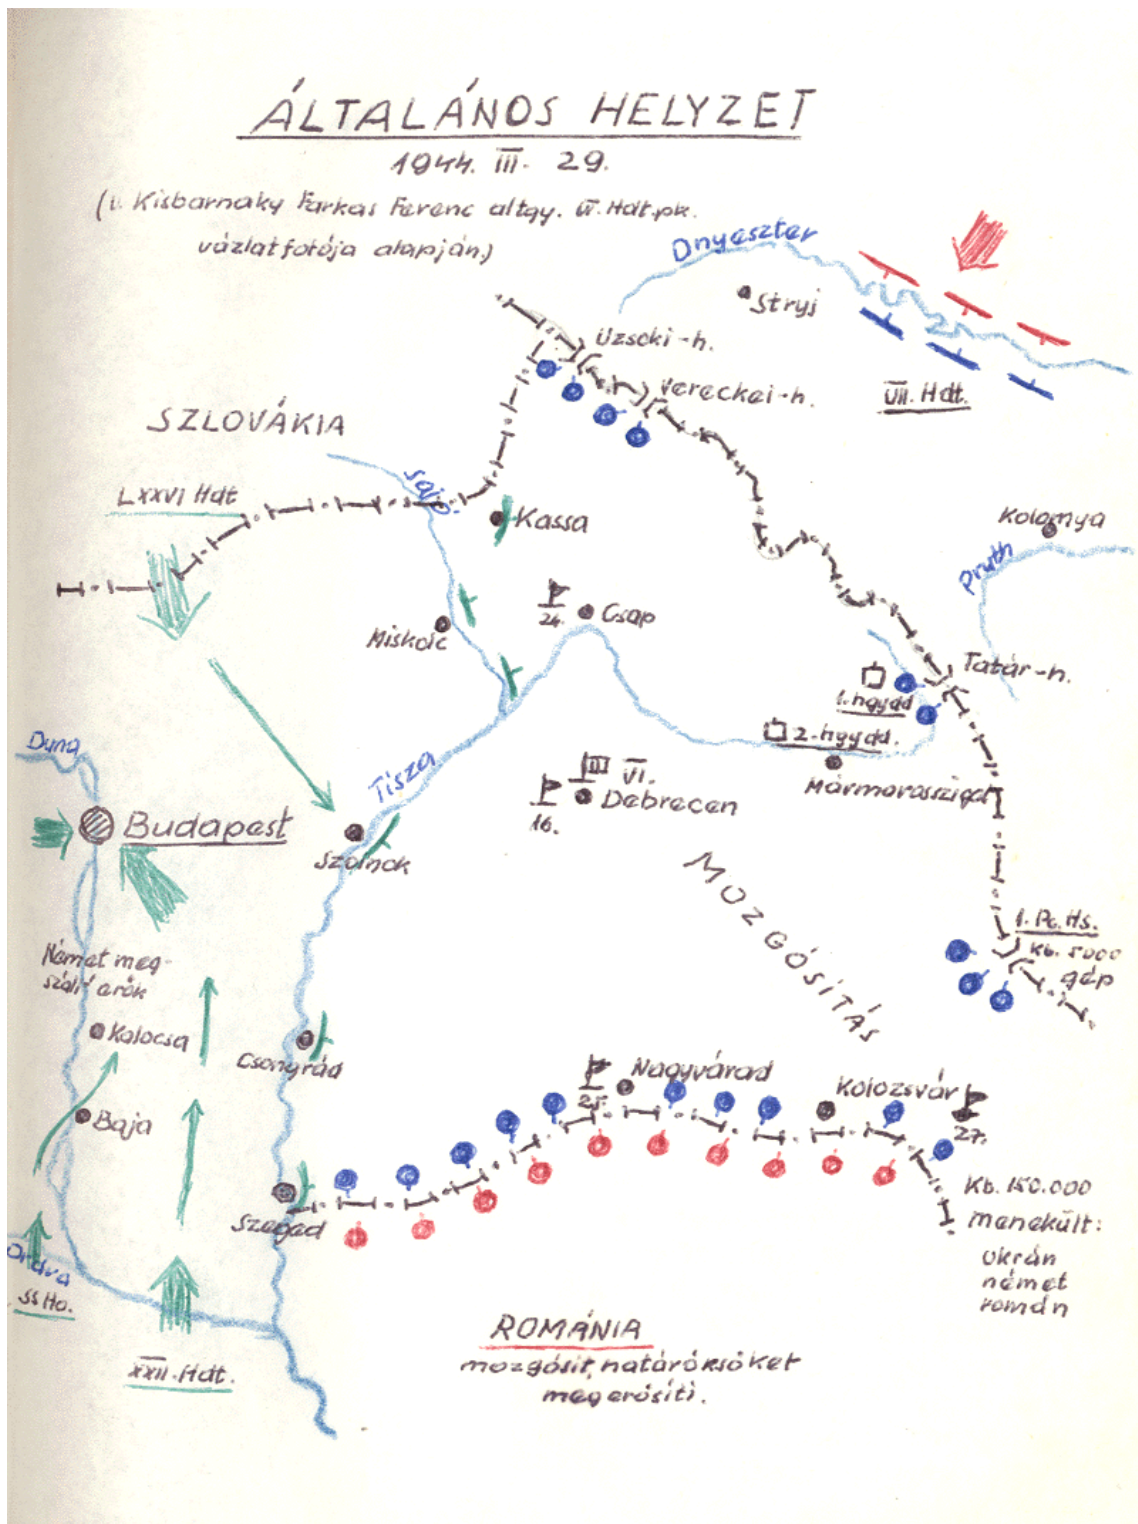 ÁLTALÁNOS HELYZET
1944. III. 29.
(v. Kisbarnaky Farkas Ferenc altgy. VI. Hdt. pk.
vázlatfotója alapján.)
Dnyeszter
Stryj
Uzsoki-h.
Vereckei-h.
VII. Hdt.
SZLOVÁKIA
LXXVI Hdt
Sajó.
Kassa
Kolomya
Pruth
24.
Csap
Miskolc
Tatár-h.
1. hgydd
2. hgydd.
Mármarossziget
Duna
Tisza
VI.
Debrecen
16.
Budapest
Szolnok
MOZGÓSÍTÁS
Német meg-
száló erők
1. Pc. Hs.
Kb. 5000
gép
Kalocsa
Csongrád
Baja
25.
Nagyvárad
Kolozsvár
27.
Szeged
Kb. 150.000
menekült:
ukrán
német
román
Dráva
SS Ho.
XXII. Hdt.
ROMÁNIA
mozgósit, határőrsöket
megerősíti.